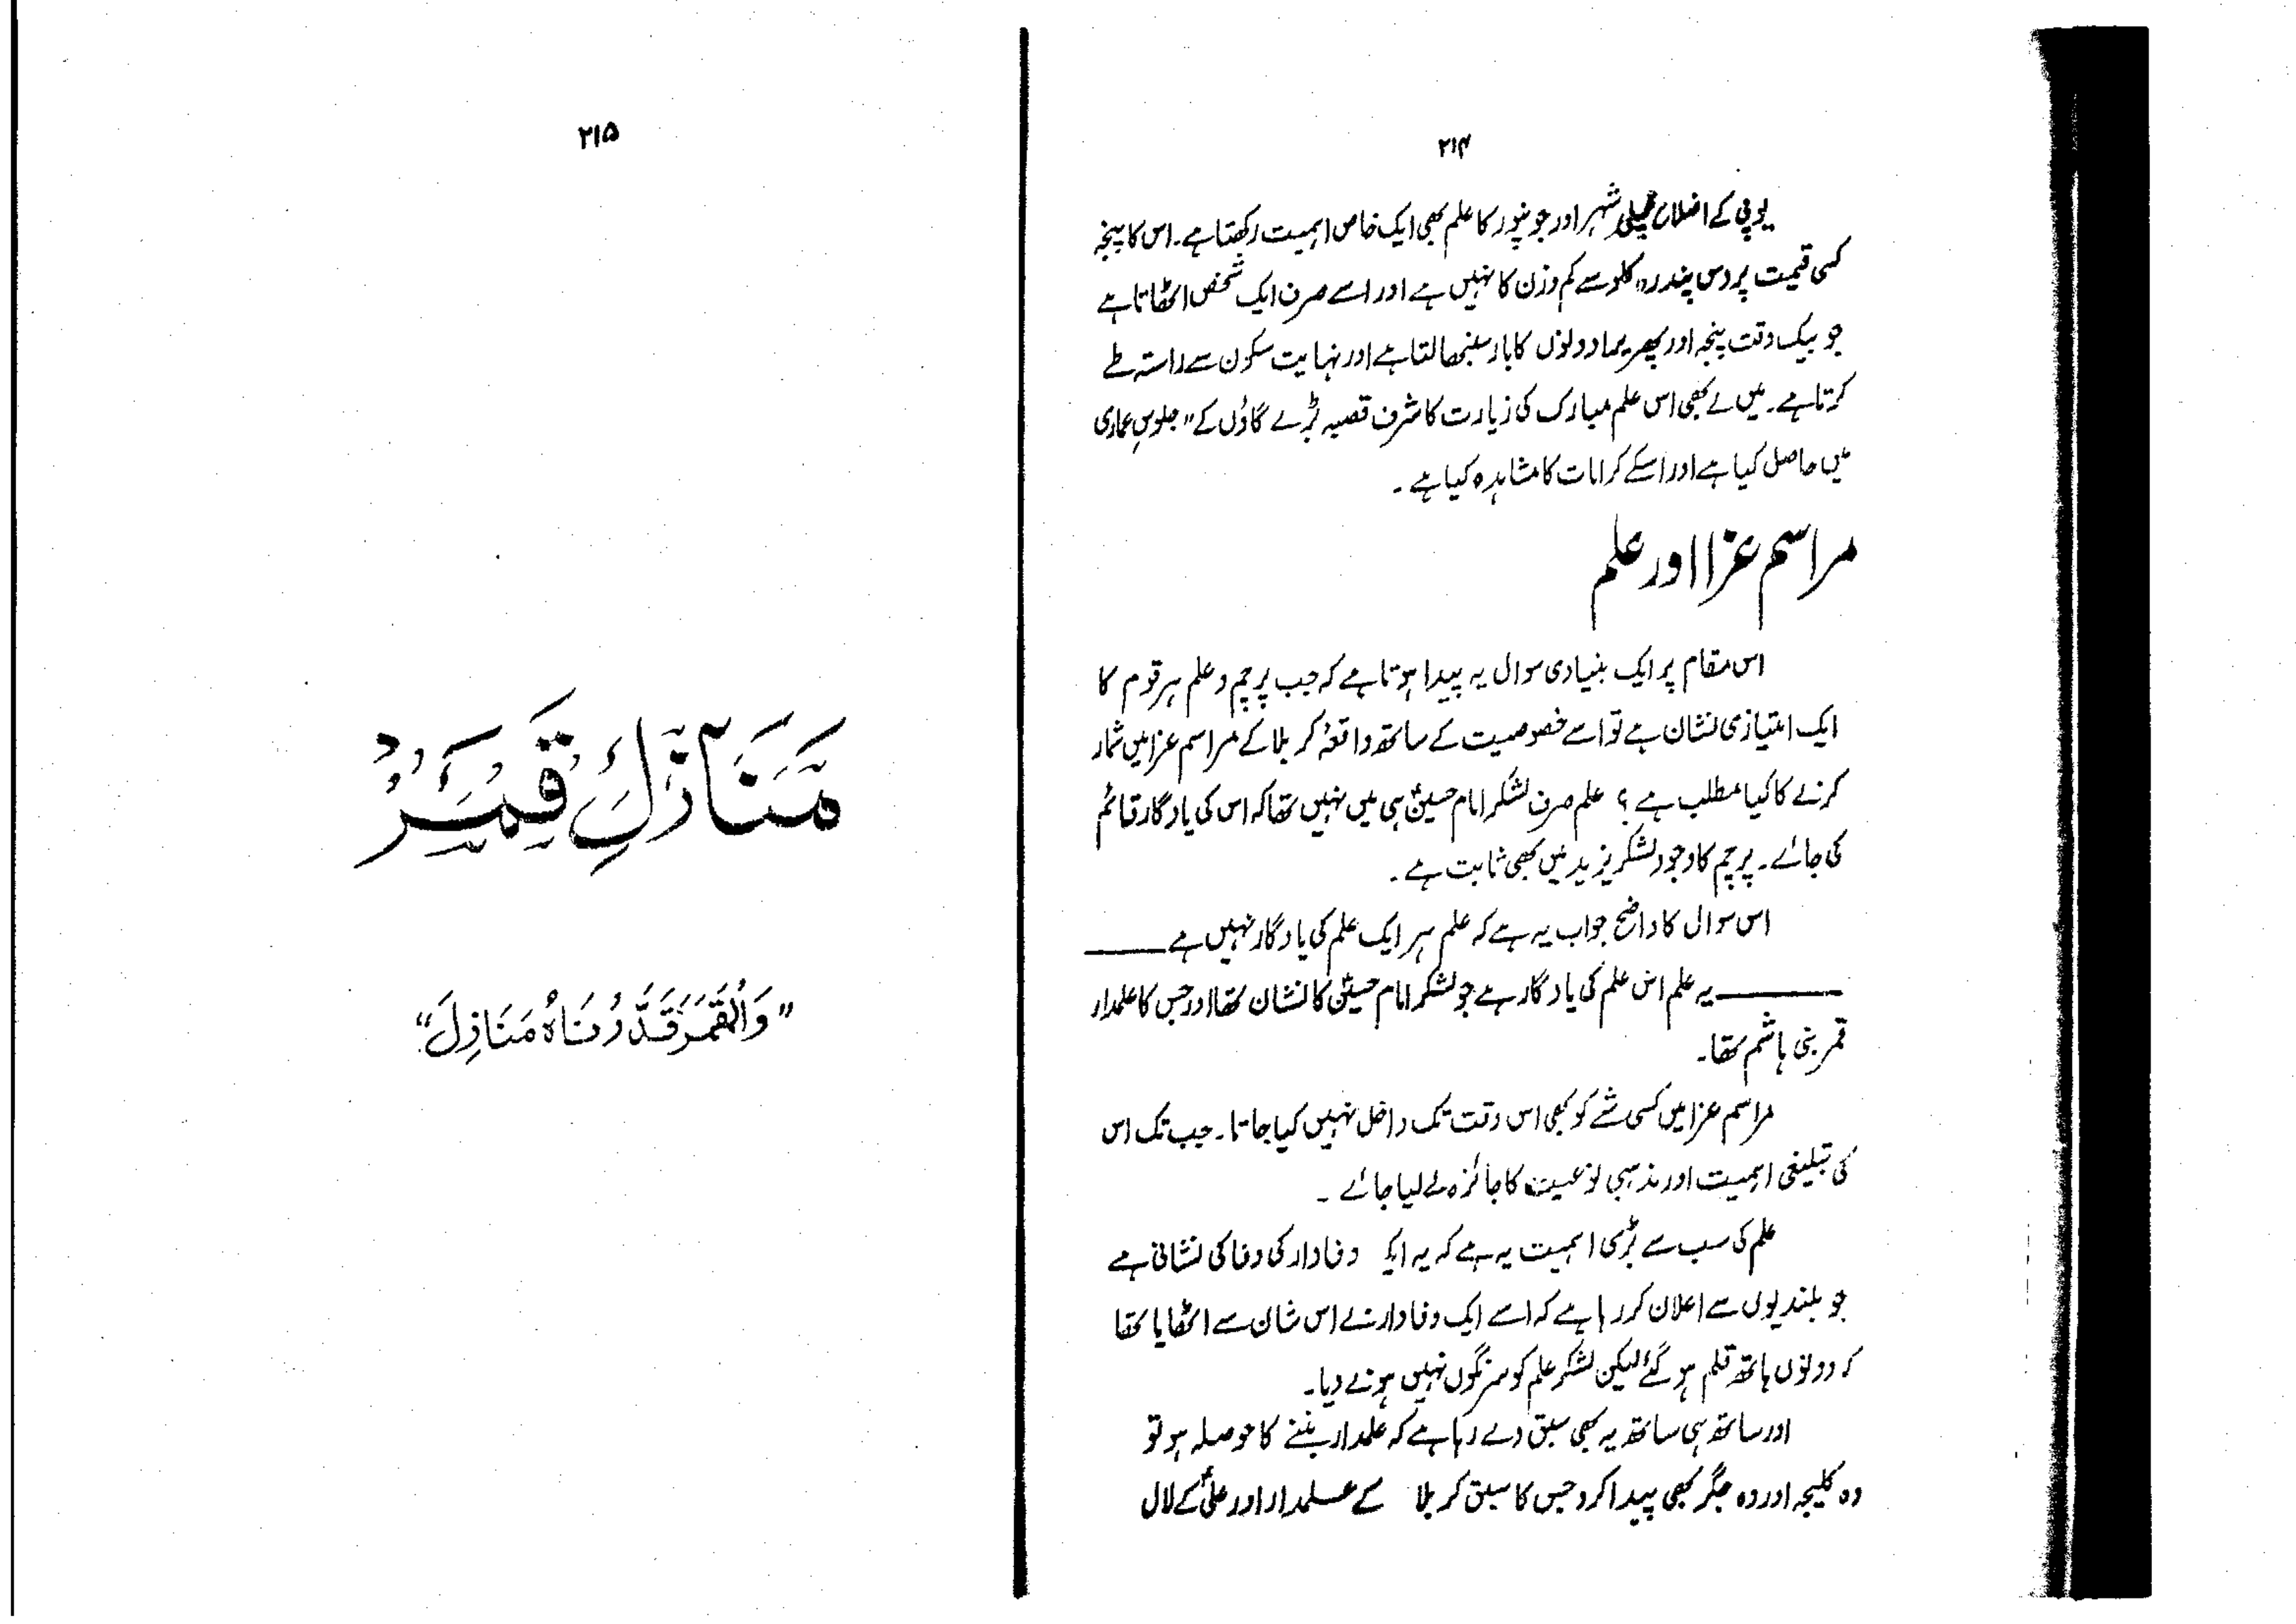 ۲۱۴
یوپی کے اضلاع مچھلی شہر اور جونپور کا علم بھی ایک خاص اہمیت رکھتا ہے۔ اس کا پنجہ
کسی قیمت پر دس پندرہ کلو سے کم وزن کا نہیں ہے اور اسے صرف ایک شخص اٹھاتا ہے
جو بیک وقت پنجہ اور پھریرا دونوں کا بار سنبھالتا ہے اور نہایت سکون سے راستہ طے
کرتا ہے۔ میں نے بھی اس علم مبارک کی زیارت کا شرف قصبہ بڑے گاؤں کے "جلوسِ عماری
میں حاصل کیا ہے اور اسکے کرامات کا مشاہدہ کیا ہے۔
مراسم عزا اور علم
اس مقام پر ایک بنیادی سوال یہ پیدا ہوتا ہے کہ جب پرچم و علم ہر قوم کا
ایک امتیازی نشان ہے تو اسے خصوصیت کے ساتھ واقعۂ کربلا کے مراسم عزا میں شمار
کرنے کا کیا مطلب ہے؟ علم صرف لشکر امام حسینؑ ہی میں نہیں تھا کہ اس کی یادگار قائم
کی جائے۔ پرچم کا وجود لشکر یزید میں بھی ثابت ہے۔
اس سوال کا واضح جواب یہ ہے کہ علم ہر ایک علم کی یادگار نہیں ہے ——
—— یہ علم اس علم کی یادگار ہے جو لشکر امام حسینؑ کا نشان تھا اور جس کا علمدار
قمر بنی ہاشم تھا۔
مراسم عزا میں کسی شے کو بھی اس وقت تک داخل نہیں کیا جاتا۔ جب تک اس
کی تبلیغی اہمیت اور مذہبی نوعیت کا جائزہ نہ لے لیا جائے۔
علم کی سب سے بڑی اہمیت یہ ہے کہ یہ ایک وفادار کی وفا کی نشانی ہے
جو بلندیوں سے اعلان کر رہا ہے کہ اسے ایک وفادار نے اس شان سے اٹھایا تھا
کہ دونوں ہاتھ قلم ہو گئے لیکن لشکر علم کو سرنگوں نہیں ہونے دیا۔
اور ساتھ ہی ساتھ یہ بھی سبق دے رہا ہے کہ علمدار بننے کا حوصلہ ہو تو
وہ کلیجہ اور وہ جگر بھی پیدا کرو جس کا سبق کربلا کے علمدار اور علیؑ کے لال
۲۱۵
مَنَازِلِ قَمَرْ
"وَالْقَمَرَ قَدَّرْنَاهُ مَنَازِلَ"